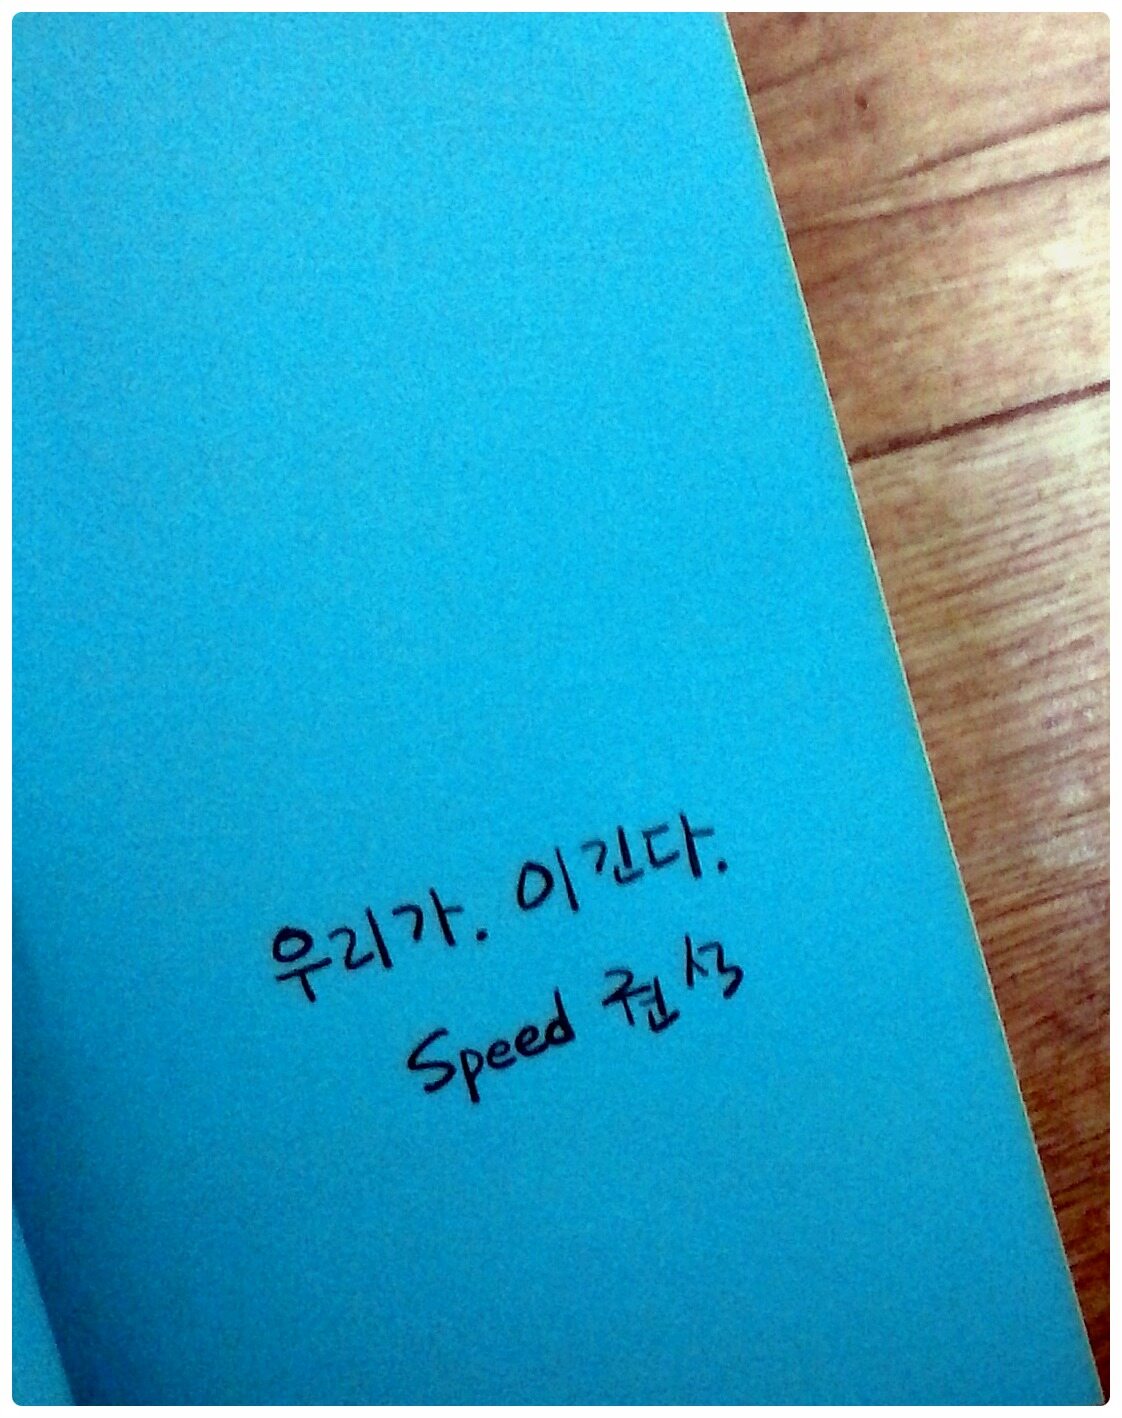 우리가. 이긴다.
Speed 권석